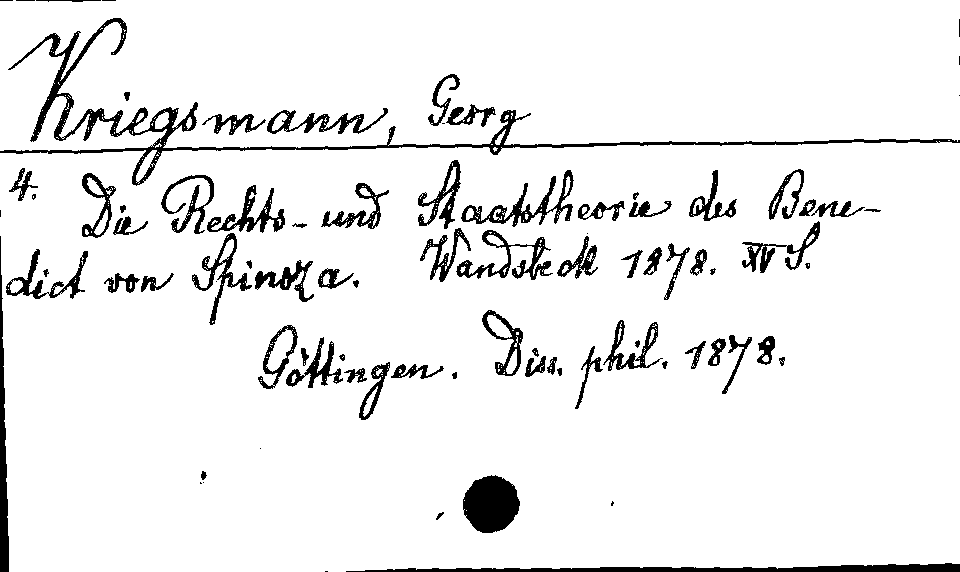 Kriegsmann, Georg
4. Die Rechts- und Staatstheorie des Bene-
dict von Spinoza. Wandsbeck 1878. XV S.
Göttingen. Diss. phil. 1878.